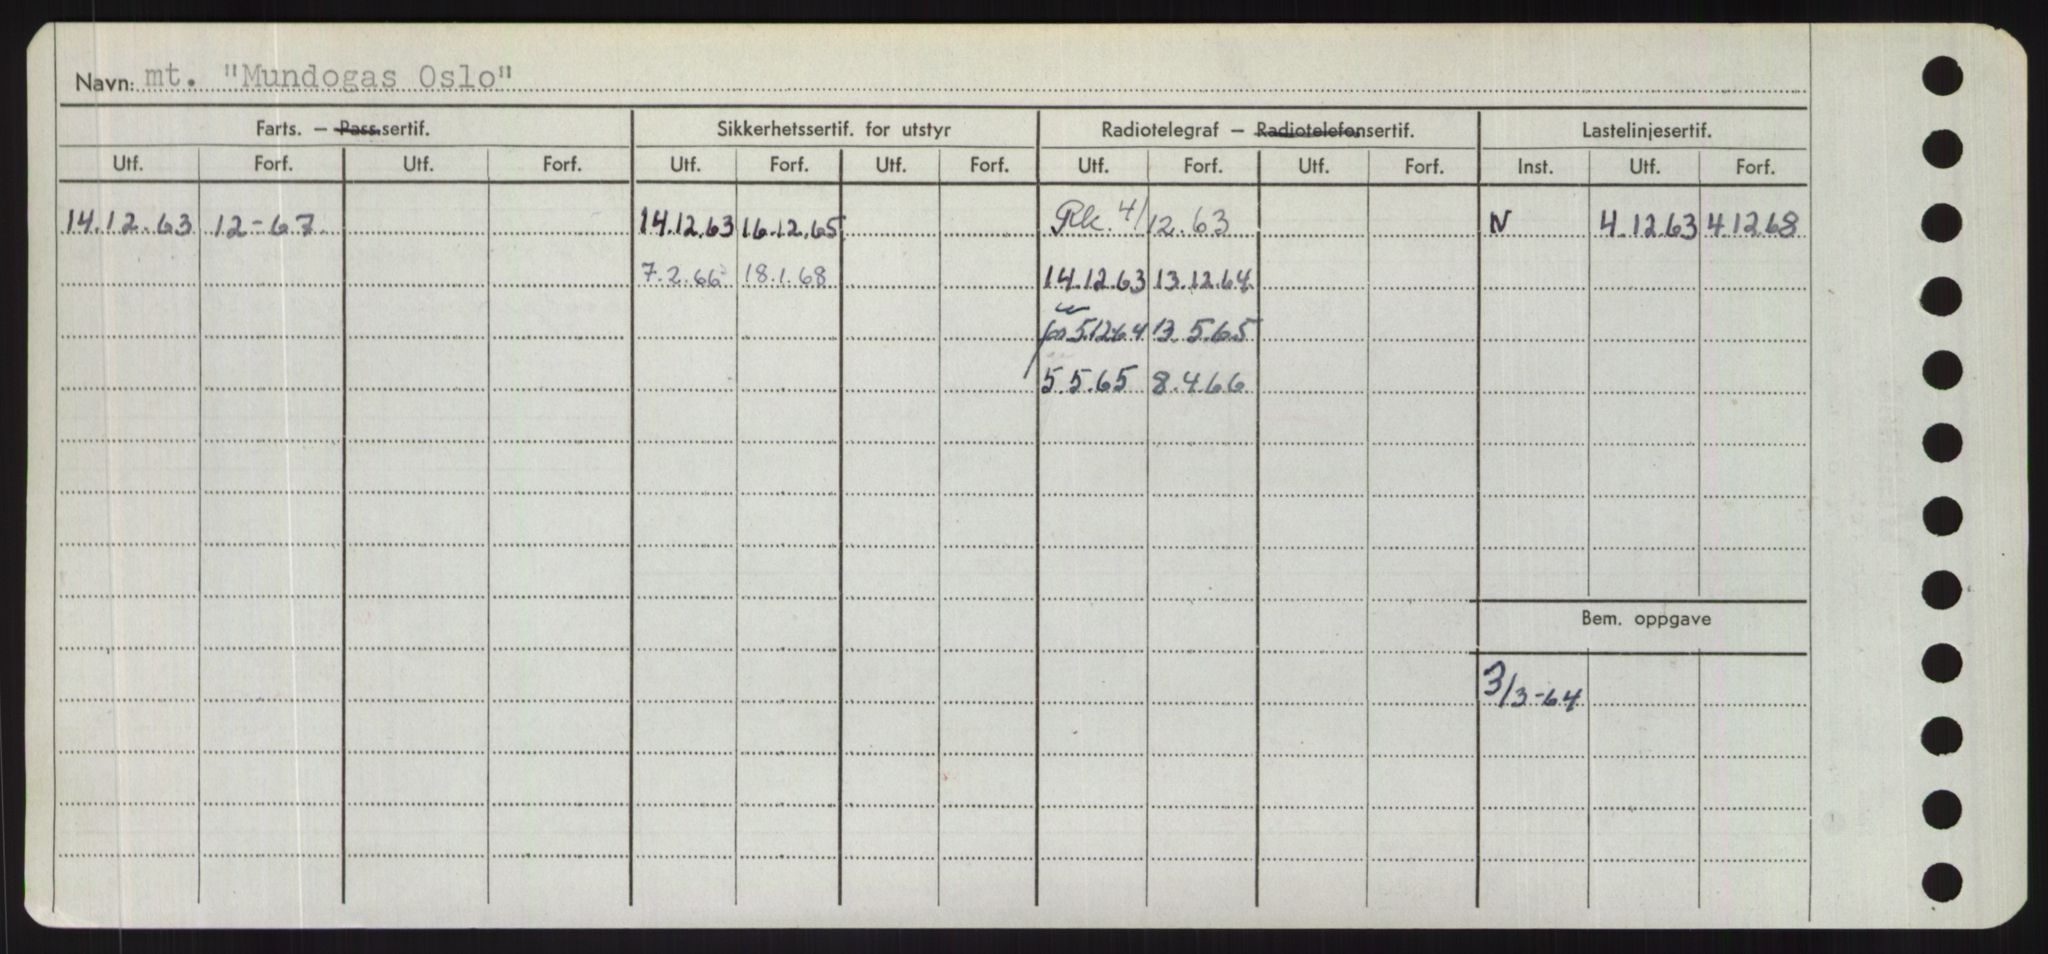 Navn: mt. "Mundogas Oslo"
Farts. – Pass.sertif. Sikkerhetssertif. for utstyr Radiotelegraf – Radiotelefonsertif. Lastelinjesertif.
Utf. Forf. Utf. Forf. Utf. Forf. Utf. Forf. Utf. Forf. Utf. Forf. Inst. Utf. Forf.
14.12.63 12-67 14.12.63 16.12.65 Rk. 4/12.63 N 4.12.63 4.12.68
7.2.66 18.1.68 14.12.63 13.12.64
5.12.64 13.5.65
5.5.65 8.4.66
Bem. oppgave
3/3-64